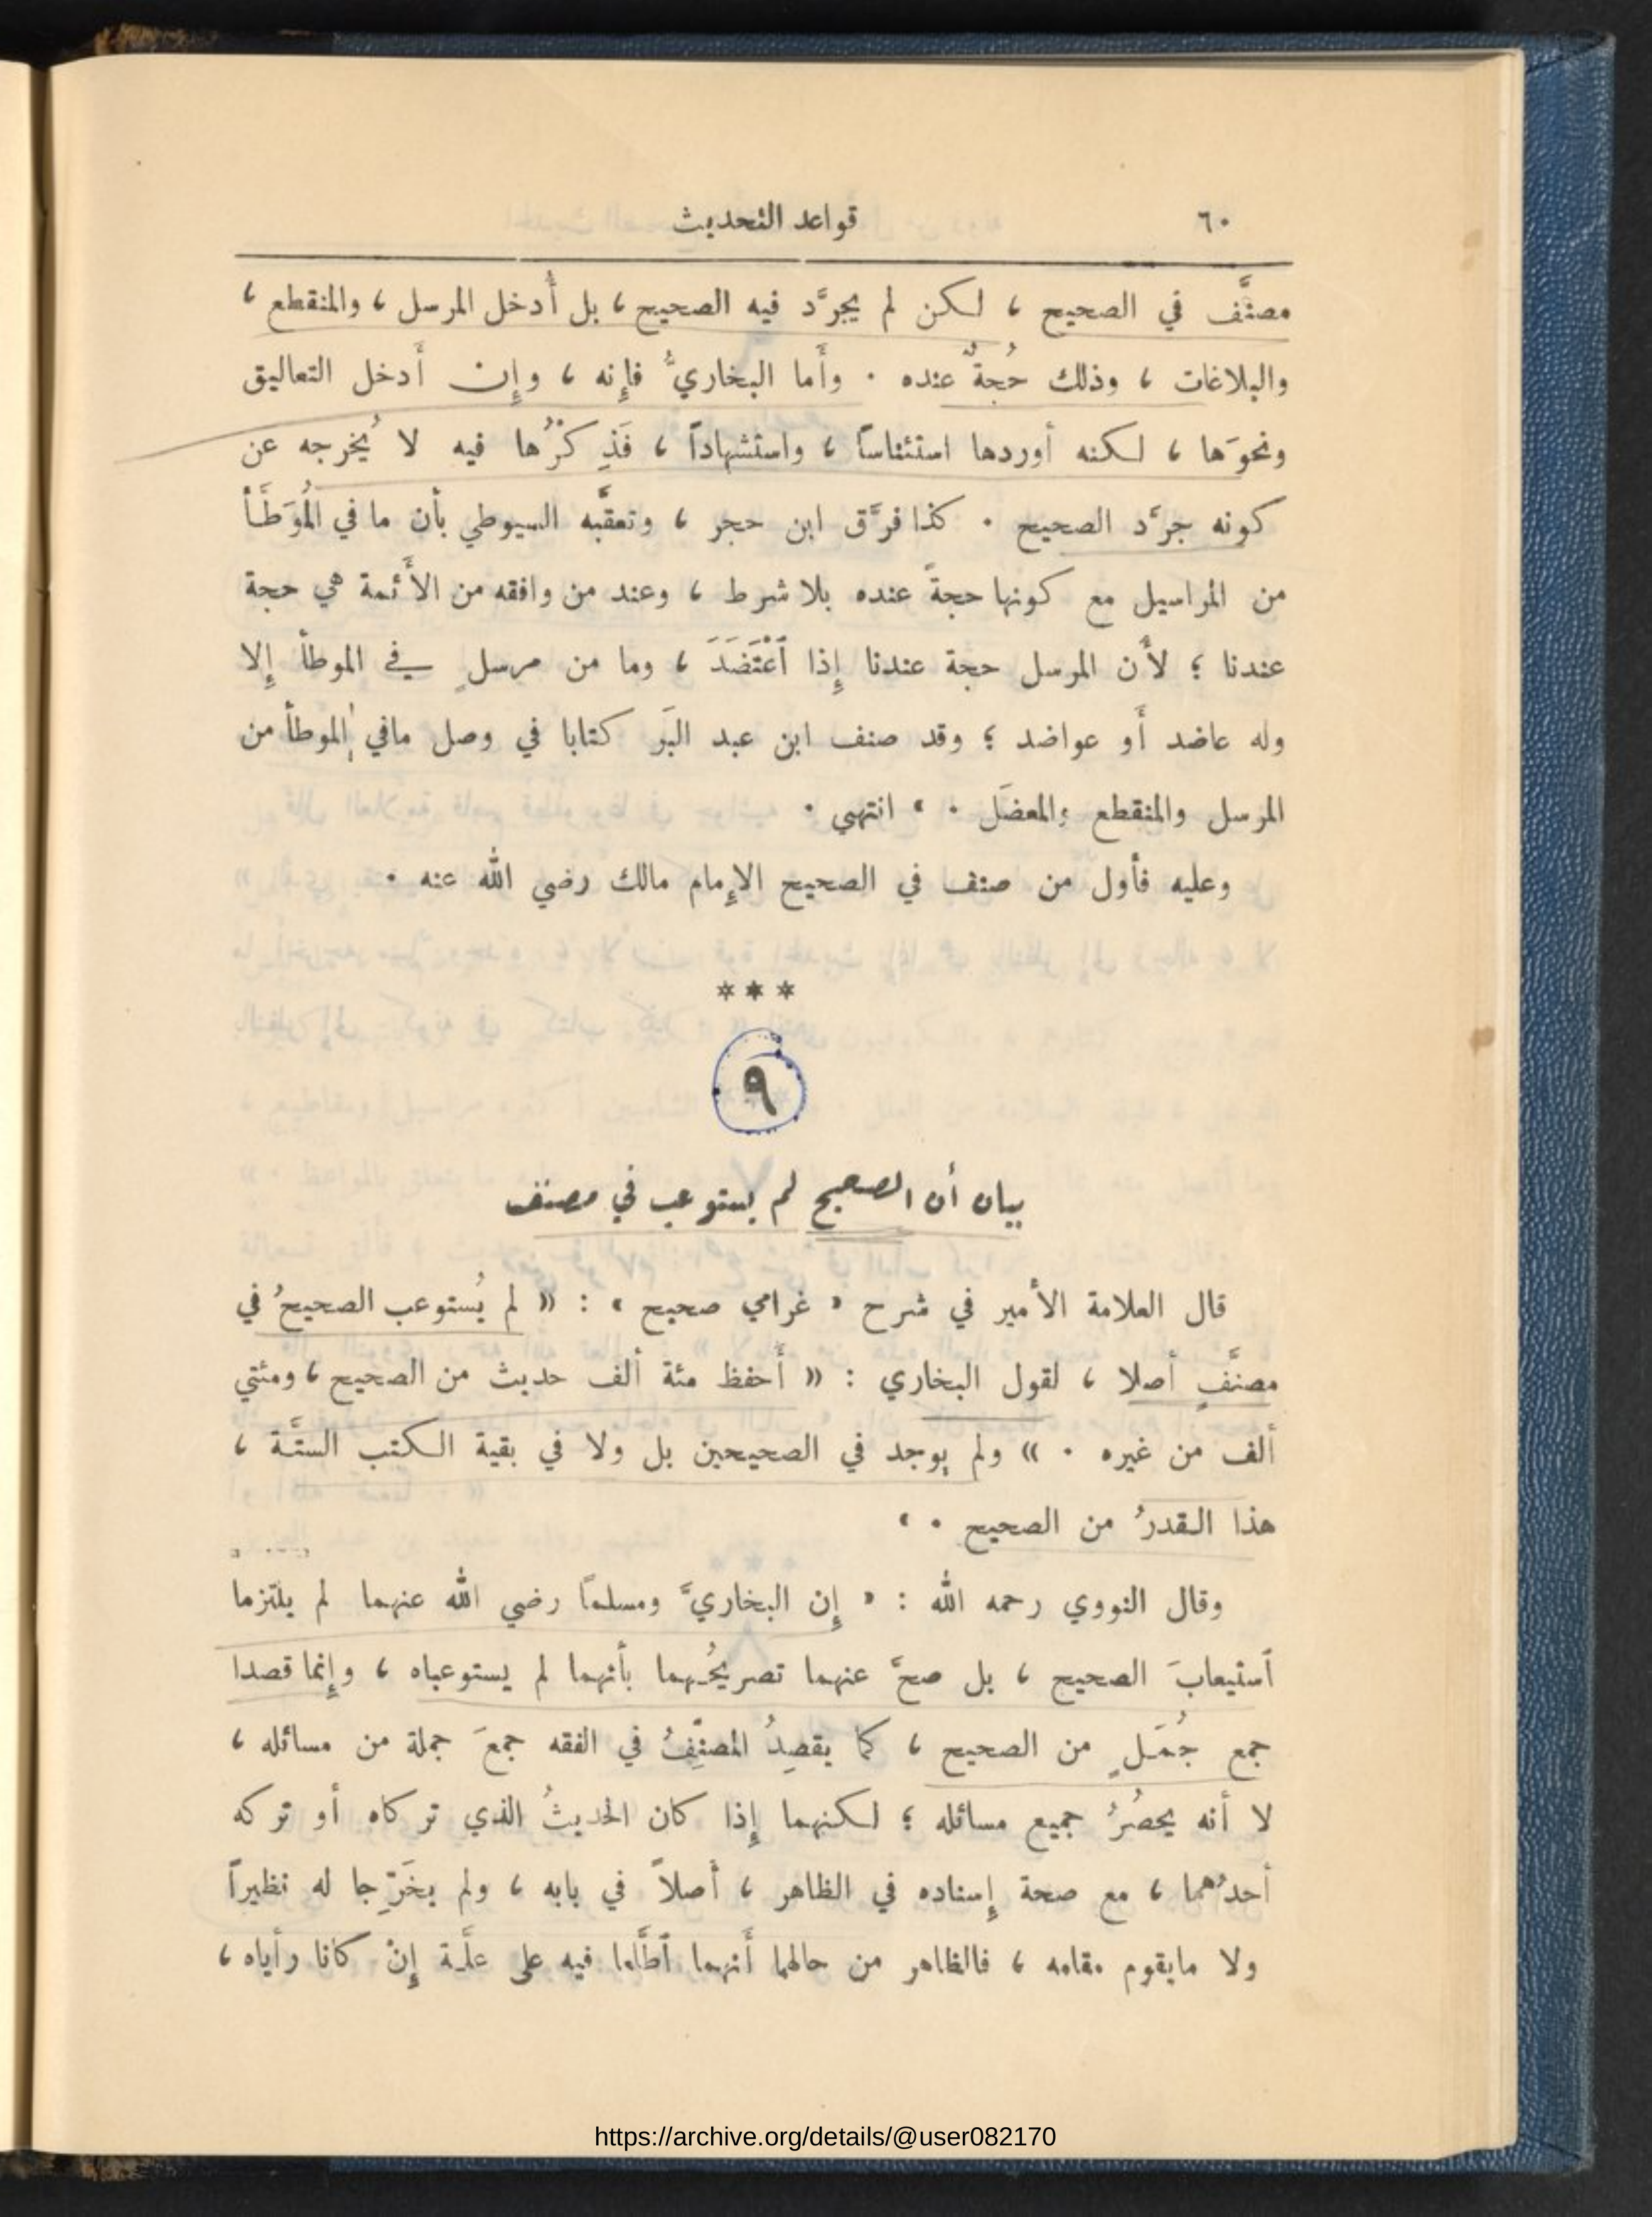 ٦٠ قواعد التحديث
مصنَّف في الصحيح ، لكن لم يجرَّد فيه الصحيح ، بل أُدخل المرسل ، والمنقطع ،
والبلاغات ، وذلك حُجةٌ عنده . وأَما البخاريُّ فإِنه ، وإِن أَدخل التعاليق
ونحوَها ، لكنه أوردها استئناساً ، واستشهاداً ، فَذِكْرُها فيه لا يُخرجه عن
كونه جرَّد الصحيح . كذا فرَّق ابن حجر ، وتعقَّبه السيوطي بأن ما في المُوَطَّأ
من المراسيل مع كونها حجةً عنده بلا شرط ، وعند من وافقه من الأَئمة هي حجة
عندنا ؛ لأَن المرسل حجة عندنا إِذا ٱعْتَضَدَ ، وما من مرسلٍ في الموطأ إِلا
وله عاضد أَو عواضد ؛ وقد صنف ابن عبد البَر كتابا في وصل مافي الموطأ من
المرسل والمنقطع والمعضَل . » انتهى .
وعليه فأول من صنف في الصحيح الإِمام مالك رضي الله عنه .
***
٩
بيان أن الصحيح لم يستوعب في مصنف
قال العلامة الأمير في شرح « غرامي صحيح » : « لم يُستوعب الصحيحُ في
مصنَّفٍ أصلا ، لقول البخاري : « أَحفظ مئة ألف حديث من الصحيح ، ومئتي
ألف من غيره . » ولم يوجد في الصحيحين بل ولا في بقية الكتب الستَّة ،
هذا القدرُ من الصحيح . »
وقال النووي رحمه الله : « إِن البخاريَّ ومسلماً رضي الله عنهما لم يلتزما
ٱستيعابَ الصحيح ، بل صحَّ عنهما تصريحُهما بأنهما لم يستوعباه ، وإِنما قصدا
جمع جُمَلٍ من الصحيح ، كما يقصِدُ المصنِّفُ في الفقه جمعَ جملة من مسائله ،
لا أنه يحصُرُ جميع مسائله ؛ لكنهما إِذا كان الحديثُ الذي تركاه أو تركه
أحدُهما ، مع صحة إِسناده في الظاهر ، أَصلاً في بابه ، ولم يخَرِّجا له نظيراً
ولا مايقوم مقامه ، فالظاهر من حالهما أَنهما ٱطَّلعا فيه على علَّة إِنْ كانا رأياه ،
https://archive.org/details/@user082170